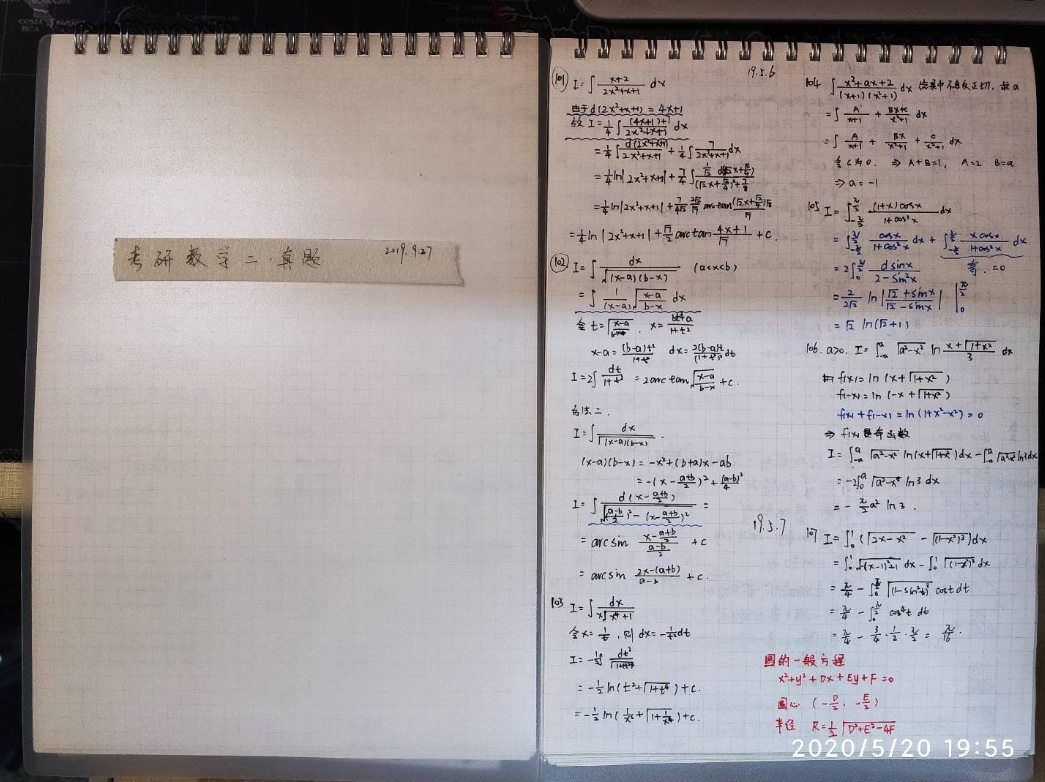 考研数学二·真题 2019.9.27
19.5.6
101 I=∫ (x+2)/(2x²+x+1) dx
由于d(2x²+x+1) = 4x+1
故 I=1/4∫ ((4x+1)+7)/(2x²+x+1) dx
=1/4∫ d(2x²+x+1)/(2x²+x+1) + 1/4∫ 7/(2x²+x+1) dx
=1/4 ln|2x²+x+1| + 7/4∫
=1/4 ln|2x²+x+1| +
=1/4 ln|2x²+x+1| + √7/2 arctan (4x+1)/√7 +c.
102 I=∫ dx/√((x-a)(b-x)) (a<x<b)
=∫ 1/(x-a) √((x-a)/(b-x)) dx
令 t=√((x-a)/(b-x)), x=(bt²+a)/(1+t²)
x-a=(b-a)t²/(1+t²) dx=2(b-a)t/(1+t²)² dt
I=2∫ dt/(1+t²) =2arctan√((x-a)/(b-x)) +c.
方法二.
I=∫ dx/√((x-a)(b-x)).
(x-a)(b-x) = -x²+(b+a)x-ab
= -(x-(a+b)/2)²+(a-b)²/4
I=∫ d(x-(a+b)/2)/√(((a-b)/2)²-(x-(a+b)/2)²) =
=arcsin (x-(a+b)/2)/((a-b)/2) +c
=arcsin (2x-(a+b))/(a-b) +c.
103 I=∫ dx/(x√(x⁴+1))
令x=1/t, 则 dx=-1/t² dt
I=-1/2∫ dt²/√(1+t⁴)
=-1/2 ln(t²+√(1+t⁴))+c.
=-1/2 ln(1/x²+√(1+1/x⁴))+c.
104 ∫ (x²+ax+2)/((x+1)(x²+1)) dx 结果中不含反正切, 求a
=∫ A/(x+1) + (Bx+c)/(x²+1) dx
=∫ A/(x+1) + Bx/(x²+1) + c/(x²+1) dx
⇒ A+B=1, A=2 B=a
⇒ a=-1
105 I=∫_{-π/2}^{π/2} (1+x)cosx/(1+cos²x) dx
=∫_{-π/2}^{π/2} cosx/(1+cos²x) dx + ∫_{-π/2}^{π/2} xcosx/(1+cos²x) dx
=2∫_0^{π/2} dsinx/(2-sin²x) 奇. =0
=2/(2√2) ln|(√2+sinx)/(√2-sinx)| |_0^{π/2}
=√2 ln(√2+1)
106. a>0. I=∫_{-a}^{a} √(a²-x²) ln (x+√(1+x²))/3 dx
f(x)=ln(x+√(1+x²))
f(-x)=ln(-x+√(1+x²))
f(x)+f(-x)=ln(1+x²-x²)=0
⇒ f(x)是奇函数
I=∫_{-a}^{a} √(a²-x²) ln(x+√(1+x²))dx-∫_{-a}^{a} √(a²-x²) ln3dx
=-2∫_0^a √(a²-x²) ln3 dx
=-π/2 a² ln3.
19.5.7
107 I=∫_0^1 (√(2x-x²) -√((1-x²)³))dx
=∫_0^1 √(-(x-1)²+1) dx -∫_0^1 √((1-x²)³) dx
=π/4 -∫_0^{π/2} √((1-sin²t)³) costdt
=π/4 -∫_0^{π/2} cos⁴t dt
=π/4 - 3/4·1/2·π/2 = π/16.
圆的一般方程
x²+y²+Dx+Ey+F=0
圆心 (-D/2, -E/2)
半径 R=1/2√(D²+E²-4F)
2020/5/20 19:55